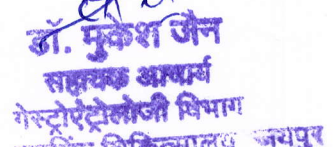 डॉ. मुकेश जैन
सहायक आचार्य
गेस्ट्रोऐंट्रोलोजी विभाग
चिकित्सालय जयपुर